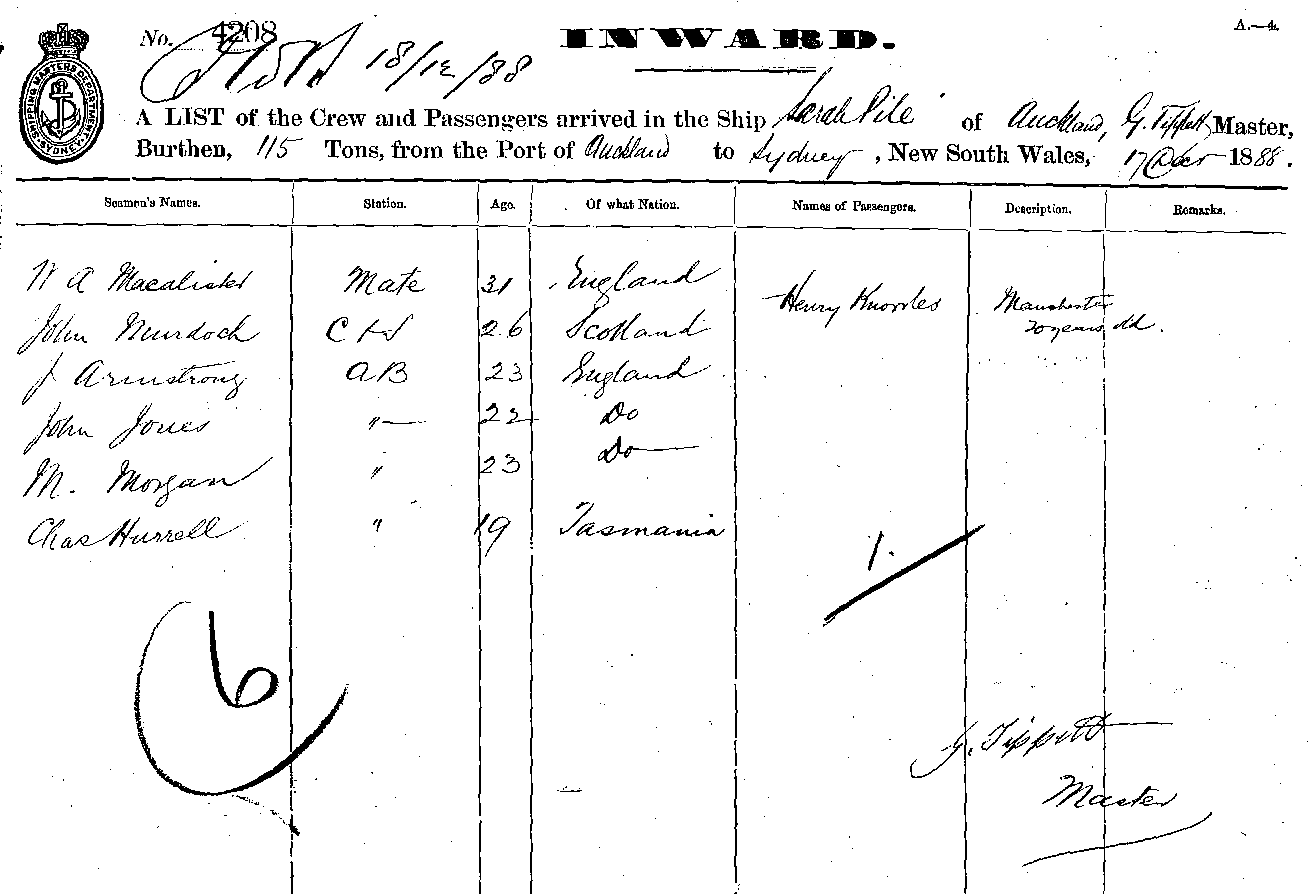 No. 4208
INWARD.
A.—4.
18/12/88
SHIPPING MASTERS DEPARTMENT SYDNEY
A LIST of the Crew and Passengers arrived in the Ship Sarah Pile of Auckland, G. Tippett, Master,
Burthen, 115 Tons, from the Port of Auckland to Sydney, New South Wales, 17 Decr 1888.
Seamen's Names. Station. Age. Of what Nation. Names of Passengers. Description. Remarks.
W A Macalister Mate 31 England Henry Knowles Manchester
John Murdoch C & S 26 Scotland 20 years old.
J Armstrong AB 23 England
John Jones "— 22 Do
M. Morgan " 23 Do
Chas Hurrell " 19 Tasmania
1.
6
G. Tippett
Master